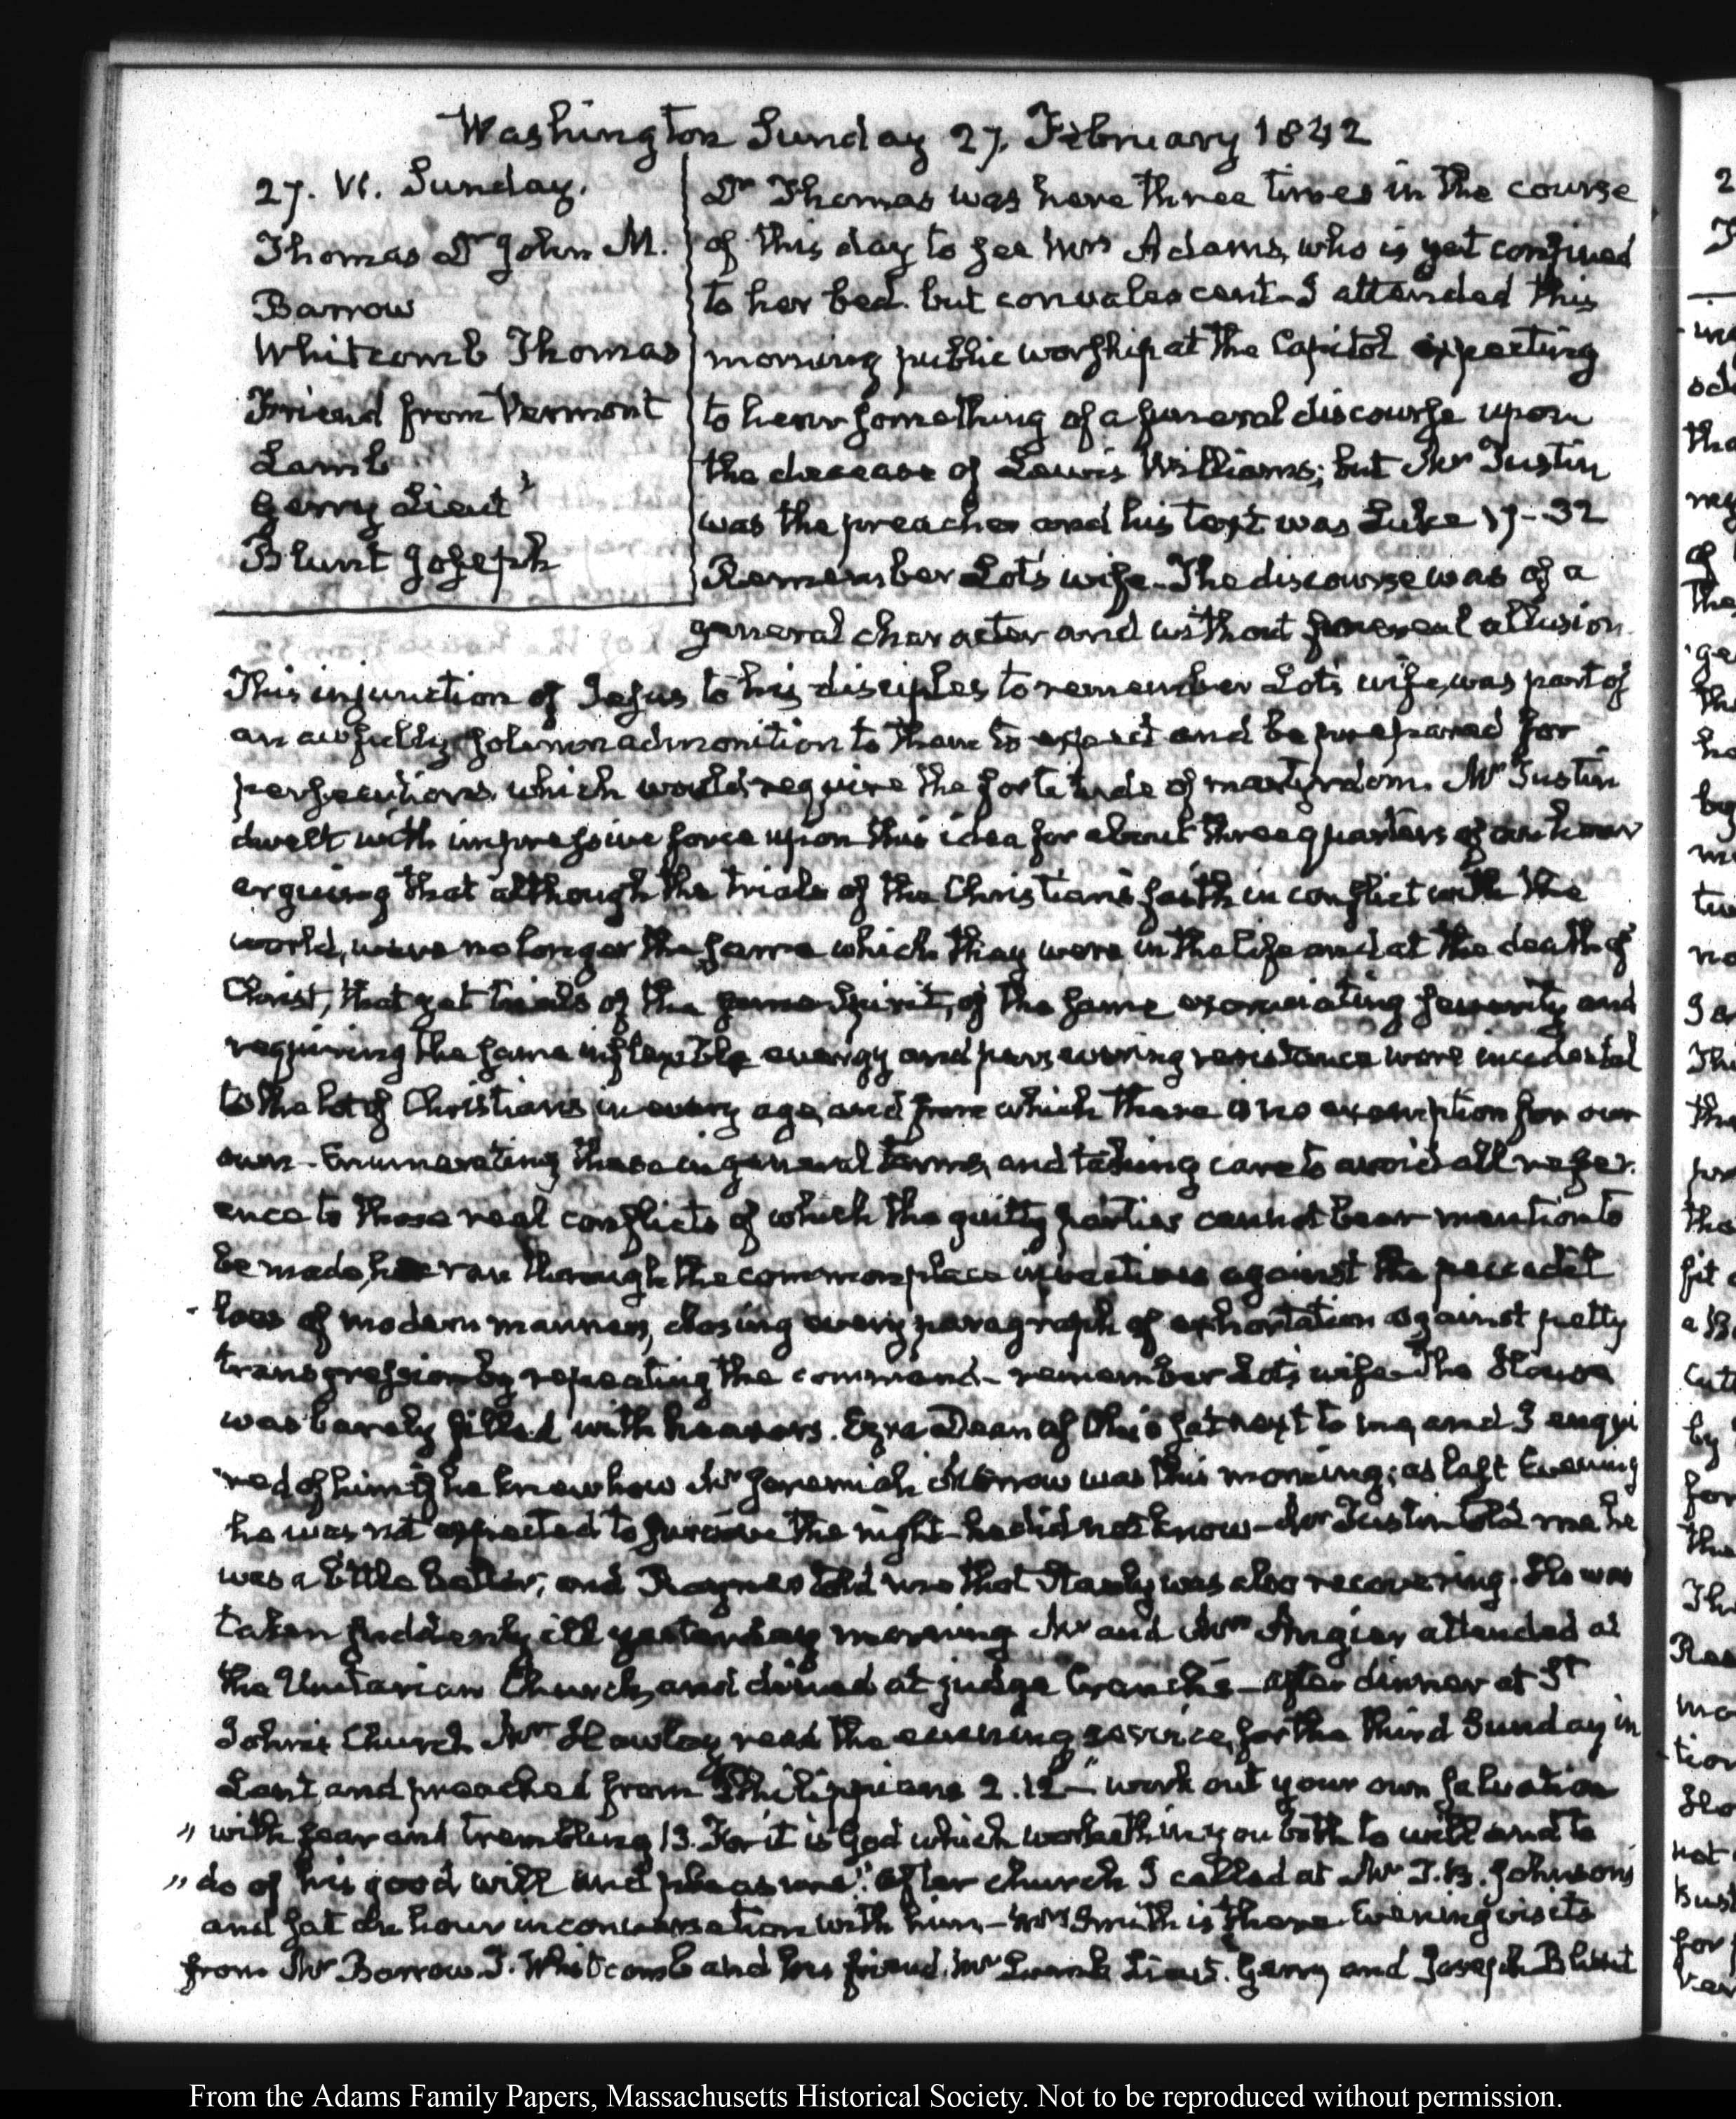 Washington Sunday 27. February 1842
27. VI. Sunday.
Thomas Dr John M.
Barrow
Whitcomb Thomas
Friend from Vermont
Lamb
Gerry Lieut
Blunt Joseph
Dr Thomas was here three times in the course
of this day to see Mrs Adams, who is yet confined
to her bed. but convalescent— I attended this
morning public worship at the Capitol expecting
to hear something of a funeral discourse upon
the decease of Lewis Williams; but Mr Tustin
was the preacher and his text was Luke 17-32
Remember Lot's wife— The discourse was of a
general character and without funereal allusion
This injunction of Jesus to his disciples to remember Lot's wife, was part of
an awfully solemn admonition to them to expect and be prepared for
persecutions which would require the fortitude of martyrdom. Mr Tustin
dwelt with impressive force upon this idea for about three quarters of an hour
arguing that although the trials of the Christian's faith in conflict with the
world, were no longer the same which they were in the life and at the death of
Christ, that yet trials of the same Spirit, of the same excruciating severity and
requiring the same inflexible energy and persevering resistance were incidental
to the lot of Christians in every age, and from which there is no exemption for our
own— Enumerating these in general terms, and taking care to avoid all refer-
ence to those real conflicts of which the guilty parties cannot bear mention to
be made, he ran through the commonplace invectives against the peccadil
loes of modern manners, closing every paragraph of exhortation against petty
transgression by repeating the command— remember Lot's wife— The House
was barely filled with hearers. Ezra Dean of Ohio sat next to me, and I enqui
red of him if he knew how Mr Jeremiah Morrow was this morning; as last Evening
he was not expected to survive the night— he did not know— Mr Tustin told me he
was a little better, and Rayner told me that Stanly was also recovering. He was
taken suddenly ill yesterday morning Mr and Mrs Angier attended at
the Unitarian Church, and dined at judge Cranch's— after dinner at St
John's Church Mr Hawley read the evening service, for the third Sunday in
Lent and preached from Philippians 2.12— "work out your own salvation
" with fear and trembling 13. For it is God which worketh in you both to will and to
" do of his good will and pleasure." After church I called at Mr T. B. Johnson's
and sat an hour in conversation with him— Mrs Smith is there. Evening visits
from Mr Barrow. T. Whitcomb and his friend. Mr Lamb Lieut. Gerry and Joseph Blunt
From the Adams Family Papers, Massachusetts Historical Society. Not to be reproduced without permission.